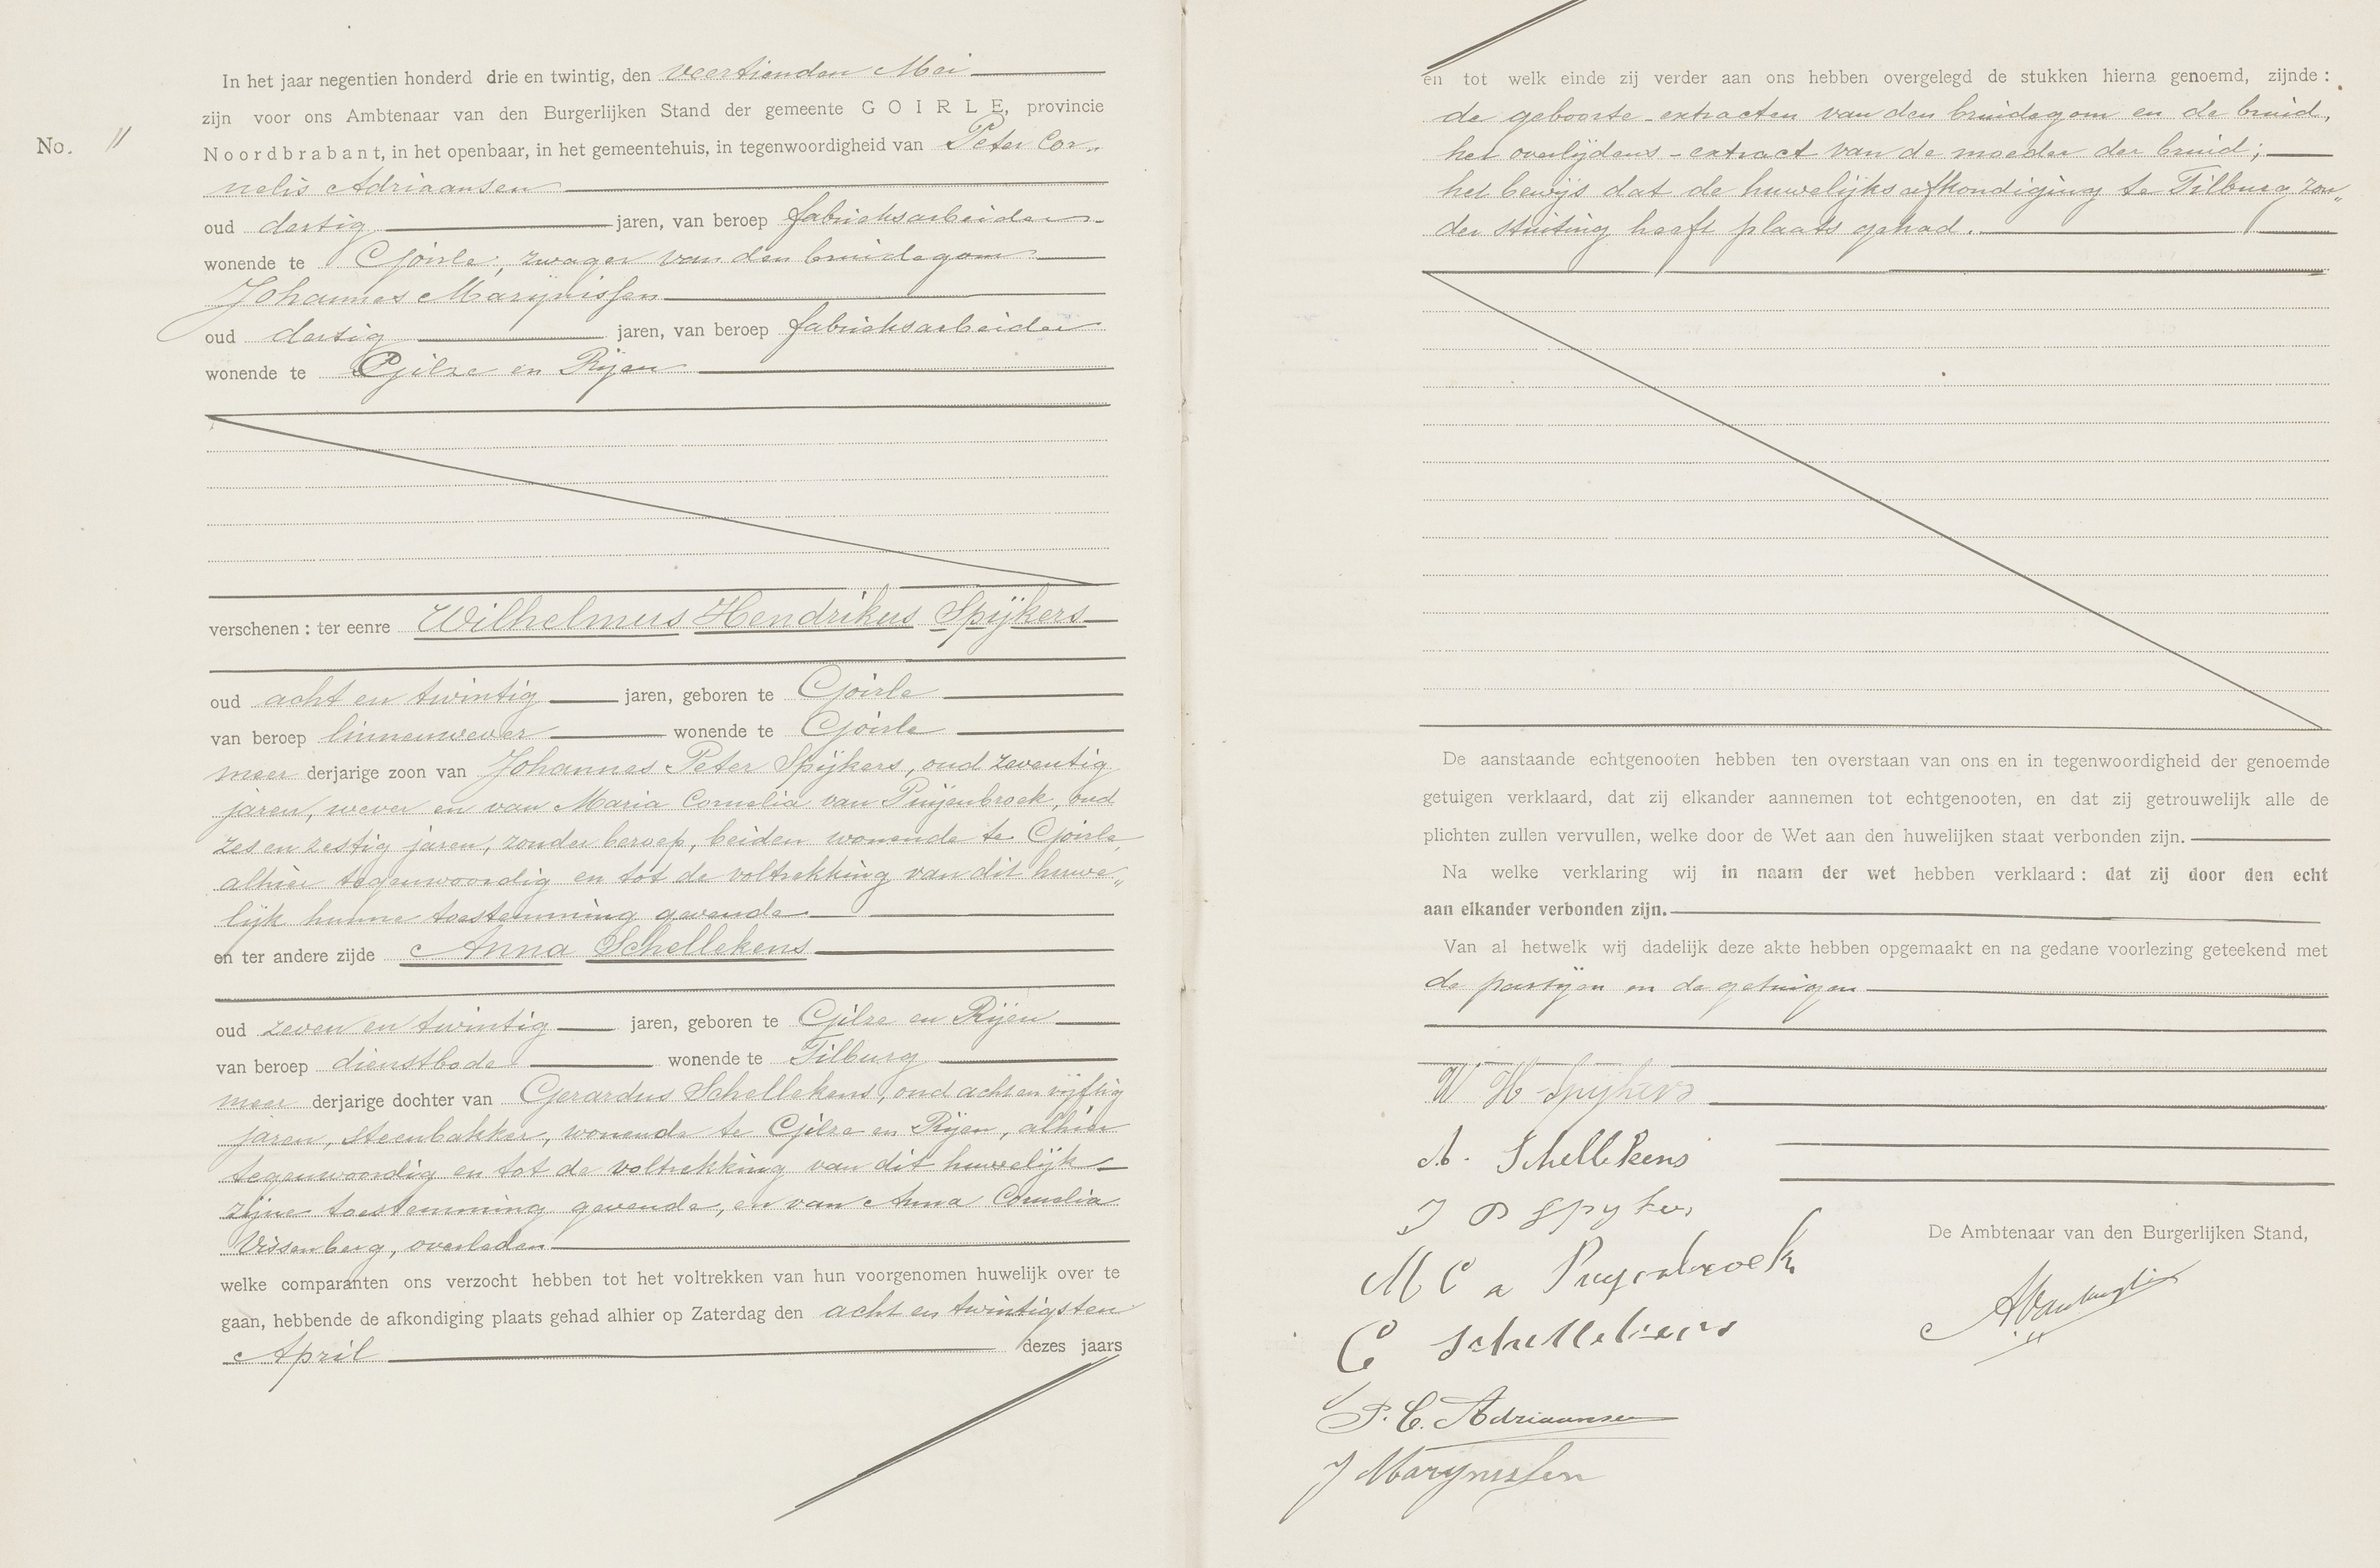 In het jaar negentien honderd drie en twintig, den veertienden Mei
zijn voor ons Ambtenaar van den Burgerlijken Stand der gemeente GOIRLE, provincie
No. 11
Noordbrabant, in het openbaar, in het gemeentehuis, in tegenwoordigheid van Peter Cor„
nelis Adriaansen
oud dertig jaren, van beroep fabrieksarbeider
wonende te Goirle, zwager van den bruidegom
Johannes Marijnissen
oud dertig jaren, van beroep fabrieksarbeider
wonende te Gilze en Rijen
verschenen : ter eenre Wilhelmus Hendrikus Spijkers
oud acht en twintig jaren, geboren te Goirle
van beroep linnenwever wonende te Goirle
meer derjarige zoon van Johannes Peter Spijkers, oud zeventig
jaren, wever en van Maria Cornelia van Puijenbroek, oud
zes en zestig jaren, zonder beroep, beiden wonende te Goirle,
alhier tegenwoordig en tot de voltrekking van dit huwe„
lijk hunne toestemming gevende
en ter andere zijde Anna Schellekens
oud zeven en twintig jaren, geboren te Gilze en Rijen
van beroep dienstbode wonende te Tilburg
meer derjarige dochter van Gerardus Schellekens, oud acht en vijftig
jaren, steenbakker, wonende te Gilze en Rijen, alhier
tegenwoordig en tot de voltrekking van dit huwelijk
zijne toestemming gevende, en van Anna Cornelia
Vissenberg, overleden
welke comparanten ons verzocht hebben tot het voltrekken van hun voorgenomen huwelijk over te
gaan, hebbende de afkondiging plaats gehad alhier op Zaterdag den acht en twintigsten
April dezes jaars
en tot welk einde zij verder aan ons hebben overgelegd de stukken hierna genoemd, zijnde :
de geboorte-extracten van den bruidegom en de bruid,
het overlijdens-extract van de moeder der bruid;
het bewijs dat de huwelijksafkondiging te Tilburg zon„
der stuiting heeft plaats gehad.
De aanstaande echtgenooten hebben ten overstaan van ons en in tegenwoordigheid der genoemde
getuigen verklaard, dat zij elkander aannemen tot echtgenooten, en dat zij getrouwelijk alle de
plichten zullen vervullen, welke door de Wet aan den huwelijken staat verbonden zijn.
Na welke verklaring wij in naam der wet hebben verklaard : dat zij door den echt
aan elkander verbonden zijn.
Van al hetwelk wij dadelijk deze akte hebben opgemaakt en na gedane voorlezing geteekend met
de partijen en de getuigen
W H Spijkers
A. Schellekens
J P Spykers
M C v Puyenbroek
De Ambtenaar van den Burgerlijken Stand,
G Schellekens
P. C. Adriaansen
J Marynissen